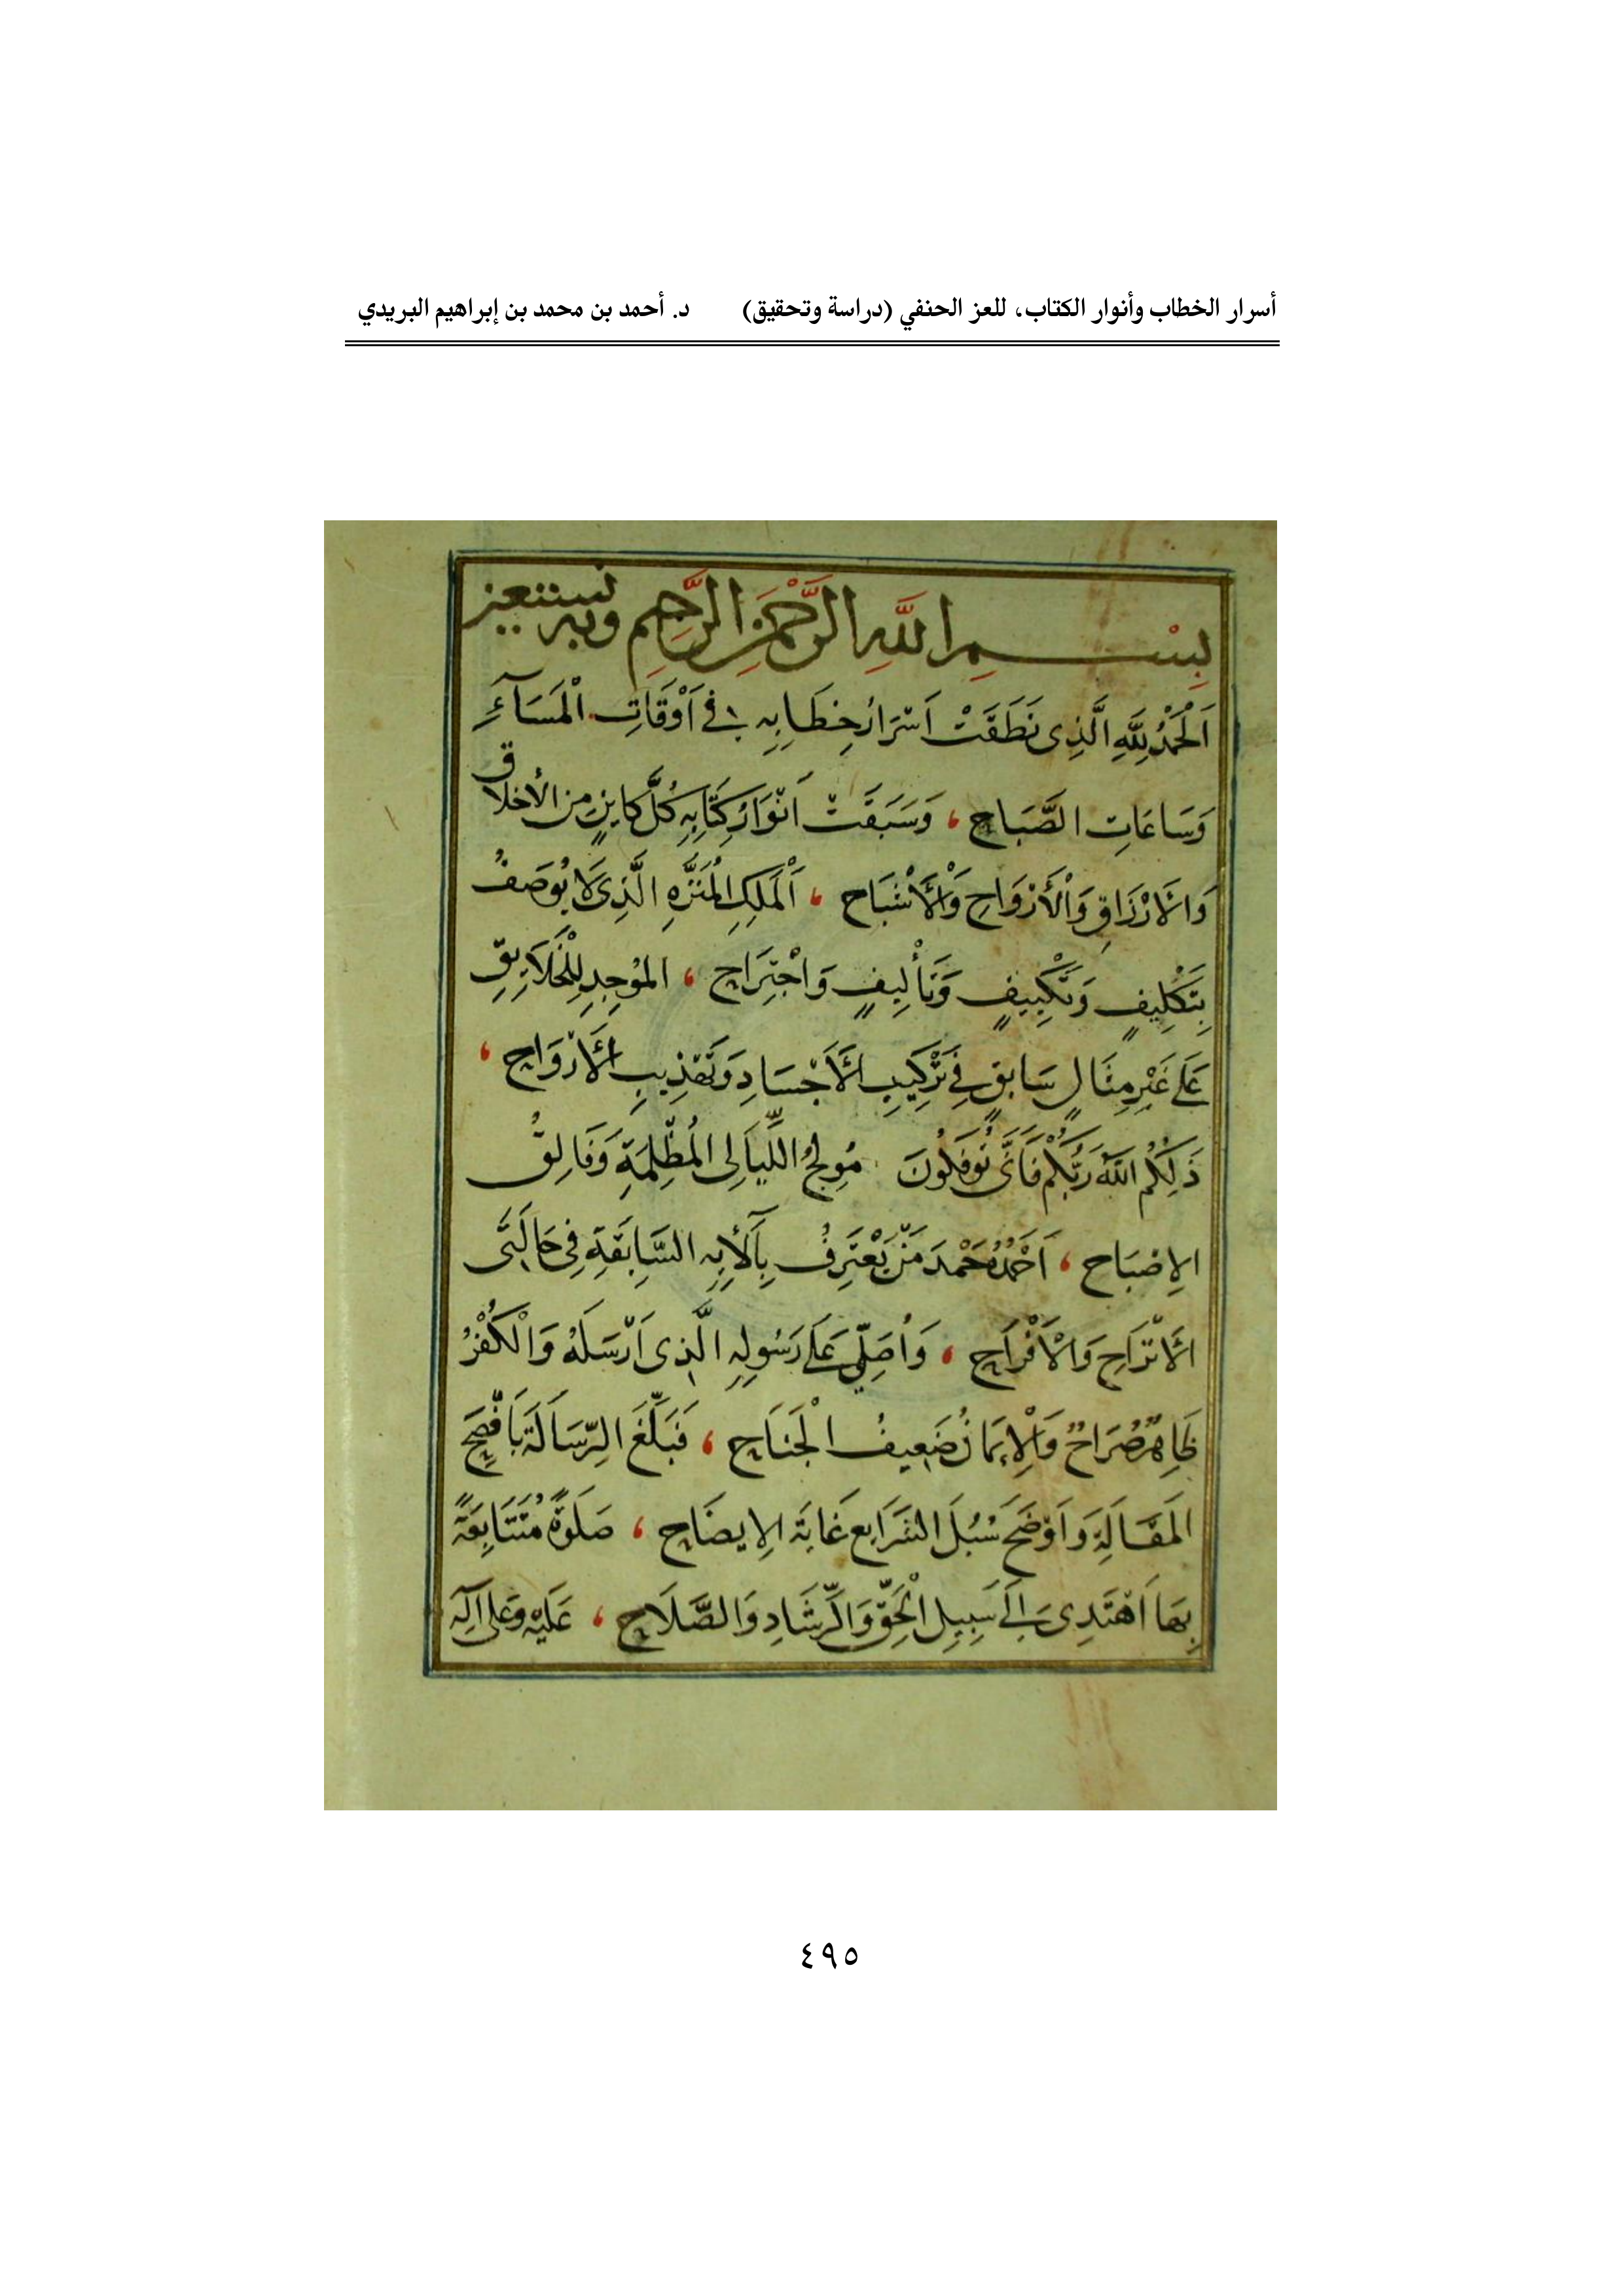 أسرار الخطاب وأنوار الكتاب، للعز الحنفي (دراسة وتحقيق) د. أحمد بن محمد بن إبراهيم البريدي
بِسْمِ اللَّهِ الرَّحْمَنِ الرَّحِيمِ وبه نستعين
اَلْحَمْدُ لِلَّهِ الَّذِى نَطَقَتْ اَسْرَارُ خِطَابِهِ فى اَوْقَاتِ الْمَسَآءِ
وَسَاعَاتِ الصَّبَاحِ ، وَسَبَقَتْ اَنْوَارُ كِتَابِهِ كُلَّ كاينٍ من الأخلاق
وَالاَرْزَاقِ وَالْأَرْوَاحِ وَالْأَشْبَاحِ ، اَلْمَلِكِ الْمُنَزَّهِ الَّذِى لَا يُوصَفُ
بِتَكْلِيفٍ وَتَكْيِيفٍ وَتَأْلِيفٍ وَاجْتِرَاحٍ ، الموُجِدِ لِلْخَلَايِقِ
عَلَى غَيْرِ مِثَالٍ سَابِقٍ فِي تَرْكِيبِ الْأَجْسَادِ وَتَهْذِيبِ الْأَرْوَاحِ ،
ذَلِكُمُ اللهُ رَبُّكُمْ فَأَنَّى تُوفَكُونَ مُولِجُ اللَّيَالِى الْمُظْلِمَةِ وَفَالِقُ
الإِصْبَاحِ ، اَحْمَدُهُ حَمْدَ مَنْ يَعْتَرِفُ بِآلَايِهِ السَّابِقَةِ فِى حَالَتَى
الْأَتْرَاحِ وَالْأَفْرَاحِ ، وَاُصَلِّي عَلَى رَسُولِهِ الَّذِى اَرْسَلَهُ وَالْكُفْرُ
ظَاهِرٌ صُرَاحٌ وَالْإِيمَانُ ضَعِيفُ الْجَنَاحِ ، فَبَلَّغَ الرِّسَالَةَ بِاَفْصَحِ
المَقَالَةِ وَاَوْضَحَ سُبُلَ الشَرَايعِ غَايَةَ الإِيضَاحِ ، صَلَوةً مُتَتَابِعَةً
بِهَا اَهْتَدِى اِلَى سَبِيلِ الْحَقِّ وَالرَّشَادِ وَالصَّلَاحِ ، عَلَيْهِ وَعلى آلِهِ
٤٩٥